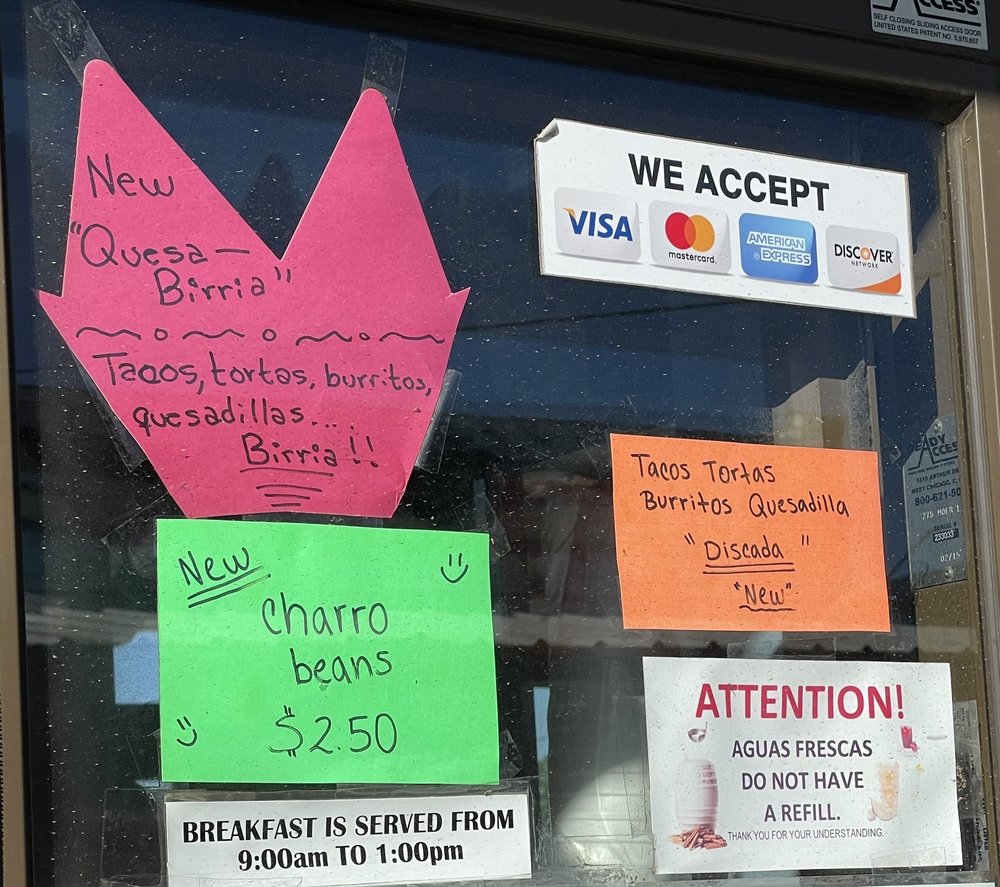 New
"Quesa —
Birria"
Tacos, tortas, burritos,
quesadillas...
Birria!!
New
Charro
beans
$2.50
BREAKFAST IS SERVED FROM
9:00am TO 1:00pm
CCESS
SELF CLOSING SLIDING ACCESS DOOR
UNITED STATES PATENT NO. 5,970,657
WE ACCEPT
VISA
mastercard.
AMERICAN
EXPRESS
DISCOVER
NETWORK
Tacos Tortas
Burritos Quesadilla
"Discada"
"New"
DY
CCES
1815 ARTHUR DR
WEST CHICAGO, IL
800-621-50
275 MOER L
SERIAL #
233033
02/15
ATTENTION!
AGUAS FRESCAS
DO NOT HAVE
A REFILL.
THANK YOU FOR YOUR UNDERSTANDING.